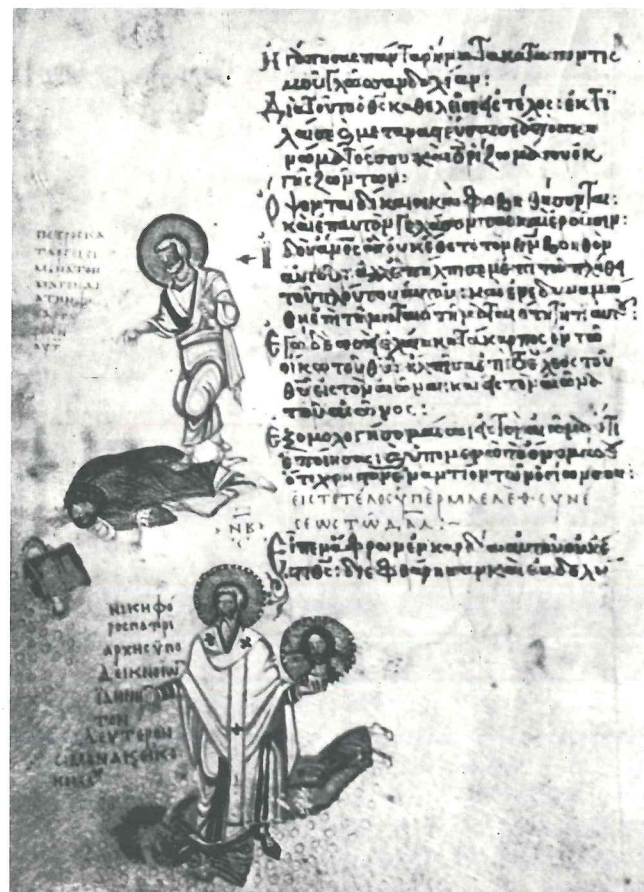 Ἠγάπησας πάντα τὰ ῥήματα καταποντισ
μοῦ γλῶσσαν δολίαν:
Διὰ τοῦτο ὁ θς καθελεῖ σε εἰς τέλος: ἐκτί
λαι σε καὶ μεταναστεύσαι σε ἀπὸ σκη
νώματός σου καὶ τὸ ῥίζωμά σου ἐκ
γῆς ζώντων:
Ὄψονται δίκαιοι καὶ φοβηθήσονται:
καὶ ἐπ αὐτὸν γελάσονται καὶ ἐροῦσιν:
ἰδοὺ ανος ὃς οὐκ ἔθετο τὸν θν βοηθὸν
αὐτοῦ: ἀλλ ἐπήλπισεν ἐπὶ τῷ πλήθει
τοῦ πλούτου αὐτοῦ: καὶ ἐνεδυναμώ
θη ἐπὶ τῇ ματαιότητι αὐτοῦ:
Ἐγὼ δὲ ὡσεὶ ἐλαία κατάκαρπος ἐν τῷ
οἴκῳ τοῦ θυ: ἤλπισα ἐπὶ τὸ ἔλεος τοῦ
θυ εἰς τὸν αἰῶνα: καὶ εἰς τὸν αἰῶνα
τοῦ αἰῶνος:
Ἐξομολογήσομαί σοι εἰς τὸν αἰῶνα ὅτι
ἐποίησας: καὶ ὑπομένω τὸ ὄνομά σου
ὅτι χρηστὸν ἐναντίον τῶν ὁσίων σου:
ΕΙΣ ΤΟ ΤΕΛΟΣ ΥΠΕΡ ΜΑΕΛΕΘ ΣΥΝΕ
ΣΕΩΣ ΤΩ ΔΑΔ:~
ΝΒ
Εἶπεν ἄφρων ἐν καρδίᾳ αὐτοῦ οὐκ ἔ
στι θς: διεφθάρησαν καὶ ἐβδελύ
ΠΕΤΡΟΣ ΚΑ
ΝΙΚΗΦΟ
ΡΟΣ ΠΑΤΡΙ
ΑΡΧΗΣ ΥΠΟ
ΔΕΙΚΝΟΙΩ
ΤΟΝ
ΔΕΥΤΕΡΟΝ